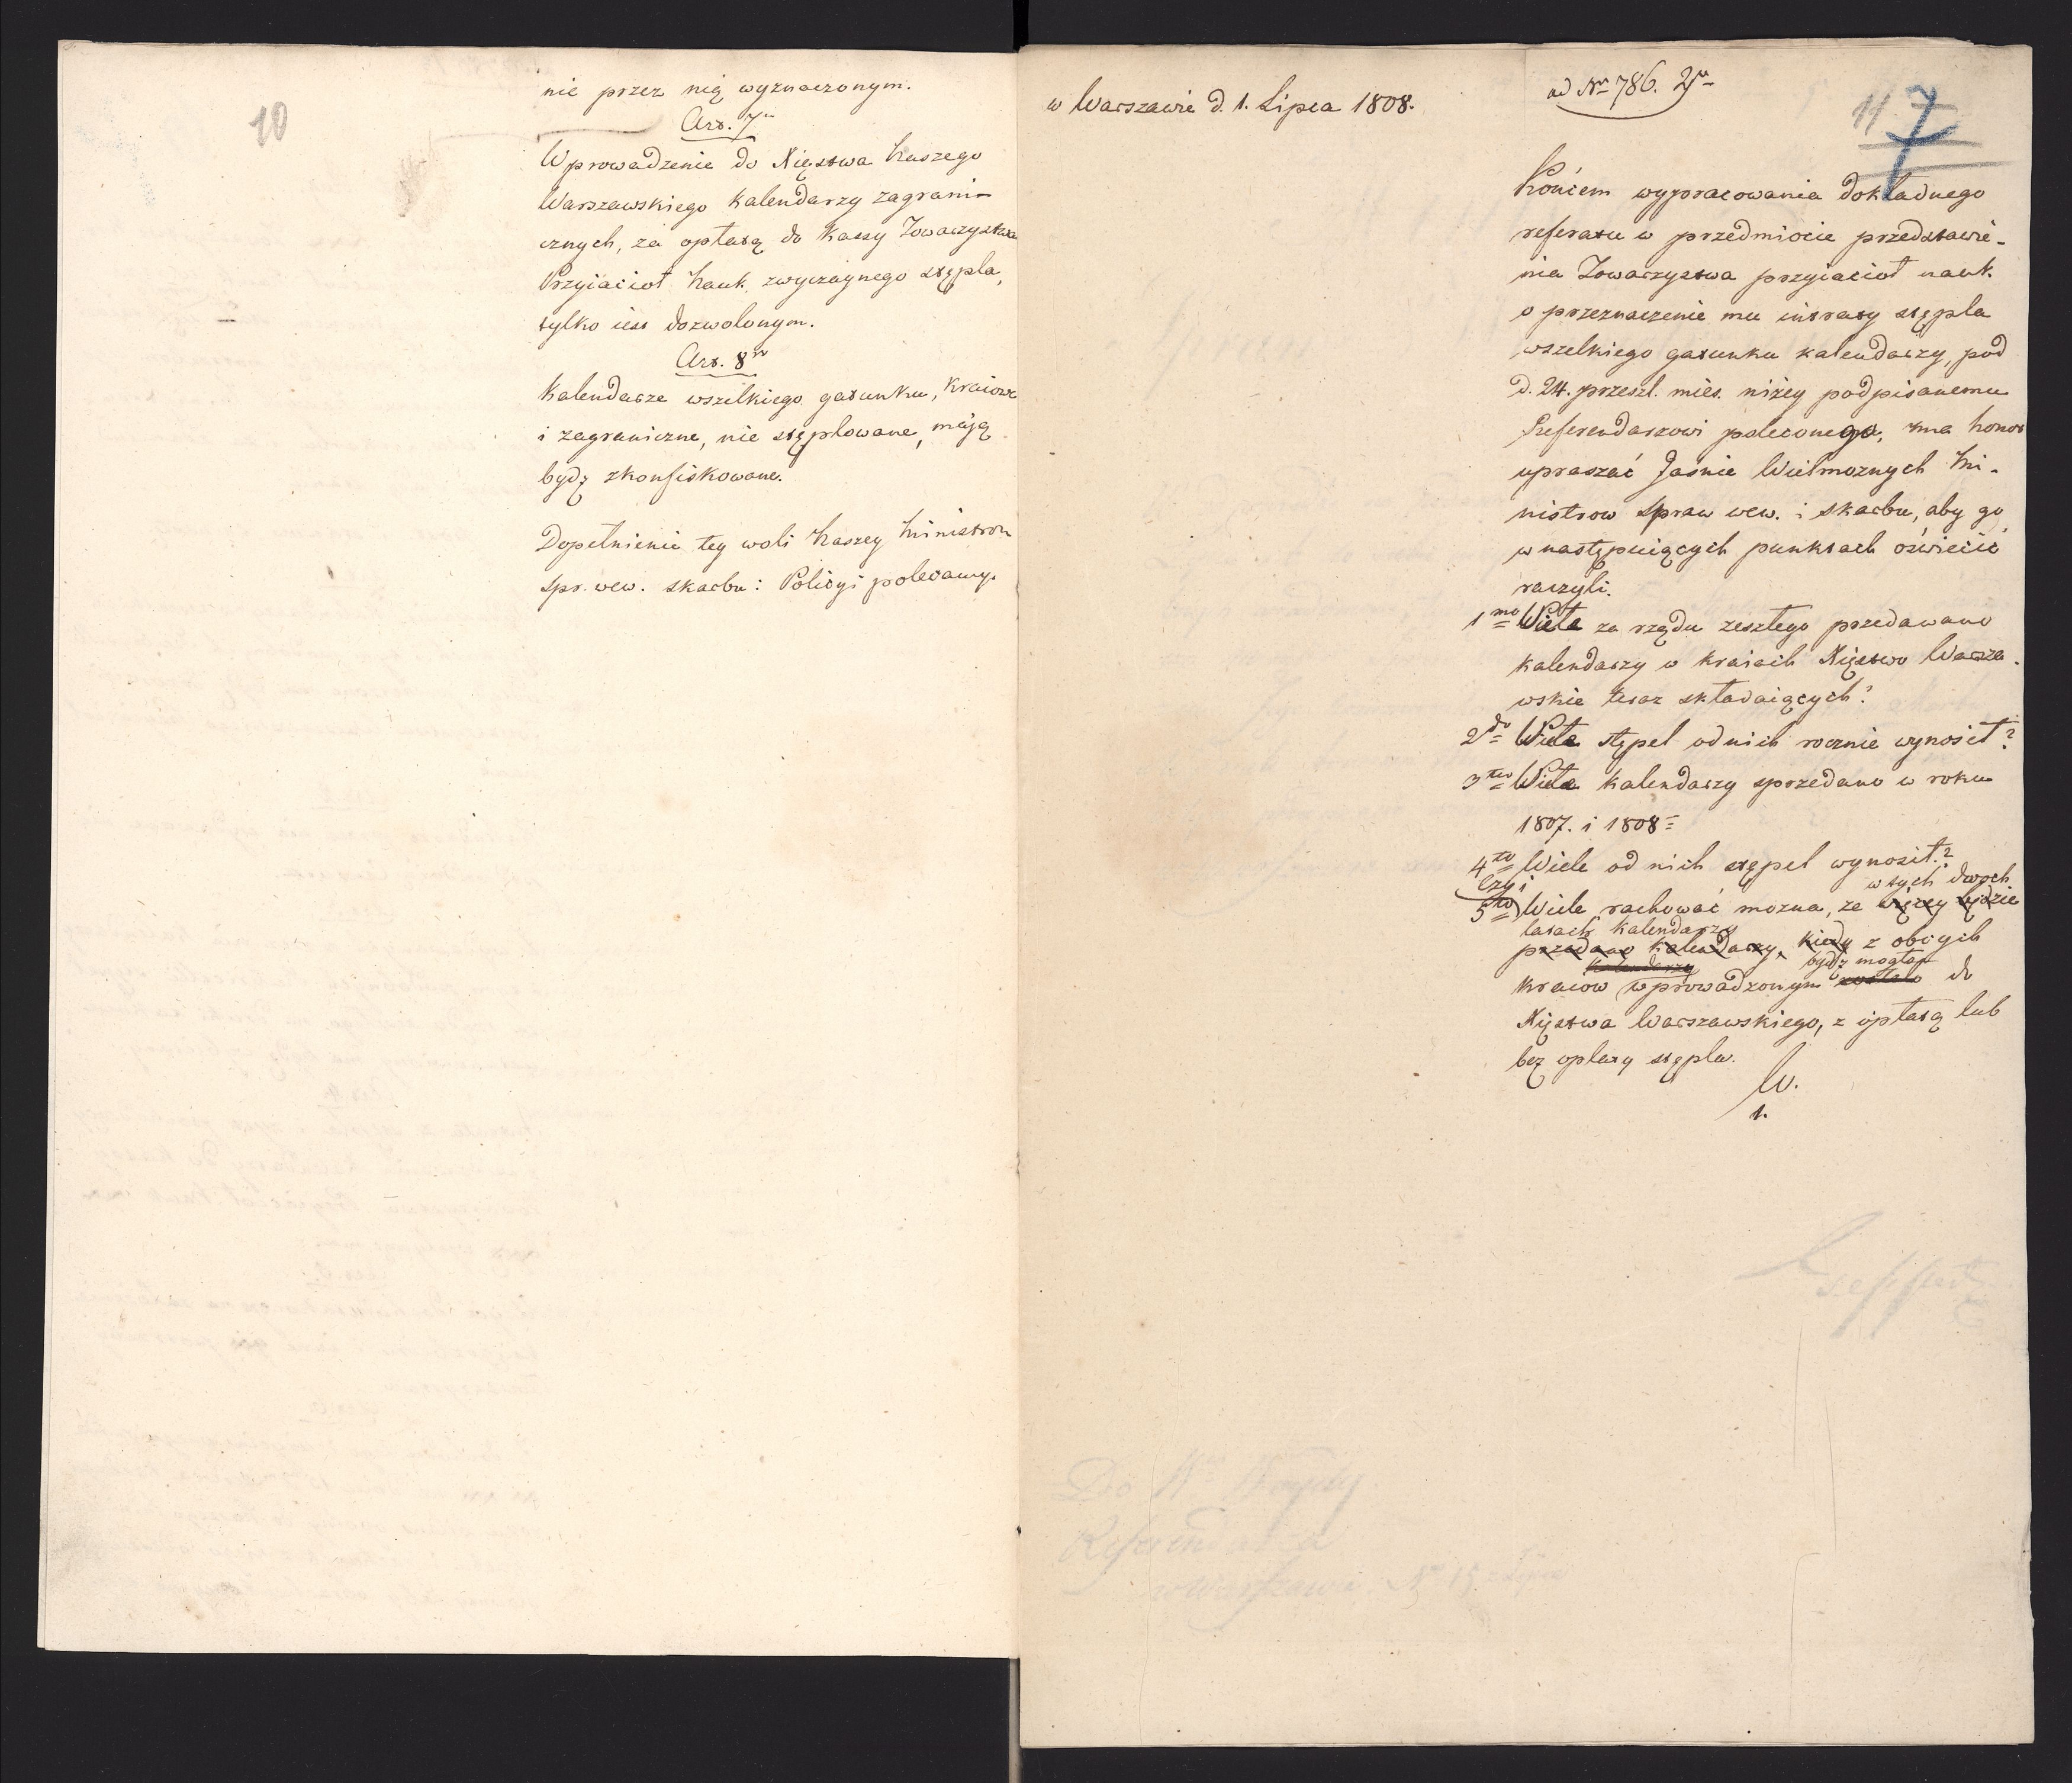 10
nie przez nią wyznaczonym.
Art. 7.
Wprowadzenie do Xięstwa Naszego
Warszawskiego kalendarzy zagrani-
cznych, za opłatą do kassy Towarzystwa
Przyiaciół Nauk zwyczaynego stępla,
tylko iest dozwolonym.
Art. 8
Kalendarze wszelkiego gatunku, kraiowe
i zagraniczne, nie stęplowane, maią
bydź zkonfiskowane.
Dopełnienie tey woli Naszey Ministrom
spr. wew. skarbu i Policyi polecamy.
w Warszawie d. 1. Lipca 1808.
ad Nr 786.
11
7
Końcem wypracowania dokładnego
referatu w przedmiocie przedstawie-
nia Towarzystwa przyiaciół nauk
o przeznaczenie mu intraty stępla
wszelkiego gatunku kalendarzy, pod
d. 24. przeszł. mies. niżey podpisanemu
Referendarzowi poleconego, ma honor
upraszać Jaśnie Wielmoznych Mi-
nistrow spraw wew. i skarbu, aby go
w następuiących punktach oświecić
raczyli.
1mo Wiele za rządu zeszłego przedawano
kalendarzy w kraiach Xięstwo Warsza-
wskie teraz składaiących?
2do Wiele stępel od nich rocznie wynosił?
3tio Wiele kalendarzy sprzedano w roku
1807. i 1808
4to Wiele od nich stępel wynosił?
Czyi w tych dwoch
5to Wiele rachować mozna, ze więcey będzie
latach kalendarzy
przedano kalendarzy, kiedy z obcych
kalendarzy bydź mogło
kraiow wprowadzonym zostało do
Xięstwa Warszawskiego, z opłatą lub
bez opłaty stępla.
W.
1.